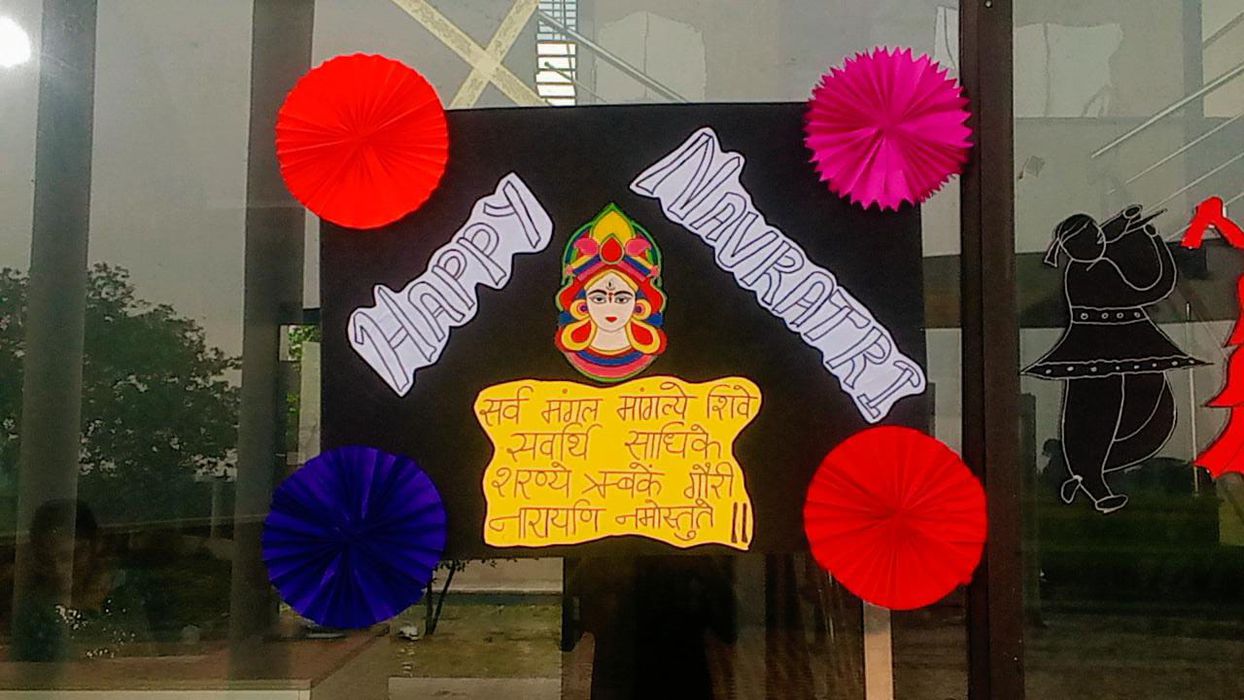 HAPPY
NAVRATRI
सर्व मंगल मांगल्ये शिवे
सवार्थि साधिके
शरण्ये त्र्म्बकें गौरी
नारायणि नमोस्तुते ||